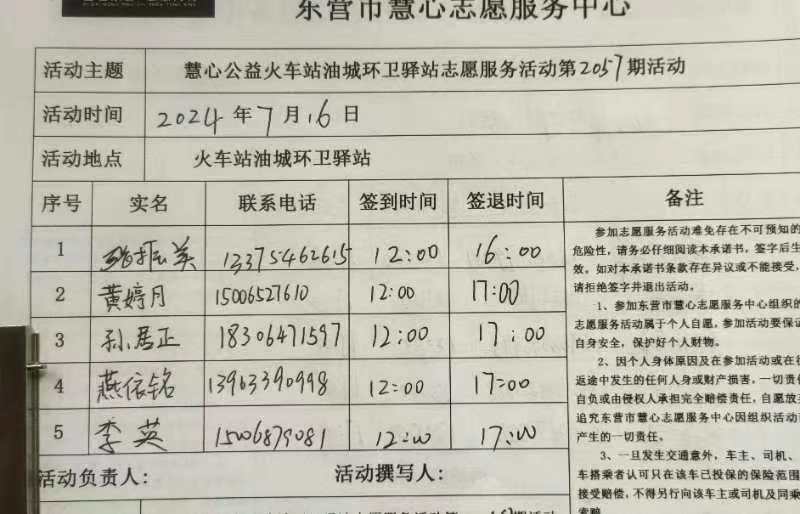 东营市慧心志愿服务中心
活动主题 慧心公益火车站油城环卫驿站志愿服务活动第2057期活动
活动时间 2024年7月16日
活动地点 火车站油城环卫驿站
序号 实名 联系电话 签到时间 签退时间 备注
1 张振英 13375462615 12:00 16:00
2 黄婷月 15006527610 12:00 17:00
3 孙居正 18306471597 12:00 17:00
4 燕依铭 13963390998 12:00 17:00
5 李英 15006879081 12:00 17:00
参加志愿服务活动难免存在不可预知的
危险性，请务必仔细阅读本承诺书，签字后生
效。如对本承诺书条款存在异议或不能接受，
请拒绝签字并退出活动。
1、参加东营市慧心志愿服务中心组织的
志愿服务活动属于个人自愿，参加活动要保证
自身安全，保护好个人财物。
2、因个人身体原因及在参加活动或在往
返途中发生的任何人身或财产损害，一切责任
自负或由侵权人承担完全赔偿责任，自愿放弃
追究东营市慧心志愿服务中心因组织活动而
产生的一切责任。
3、一旦发生交通意外，车主、司机、
车搭乘者认可只在该车已投保的保险范围
接受赔偿，不得另行向该车主或司机及同乘
索赔
活动负责人： 活动撰写人：